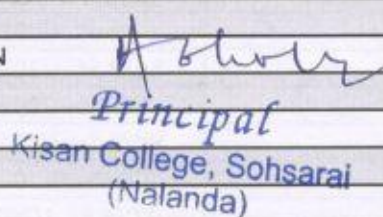 N
Principal
Kisan College, Sohsarai
(Nalanda)